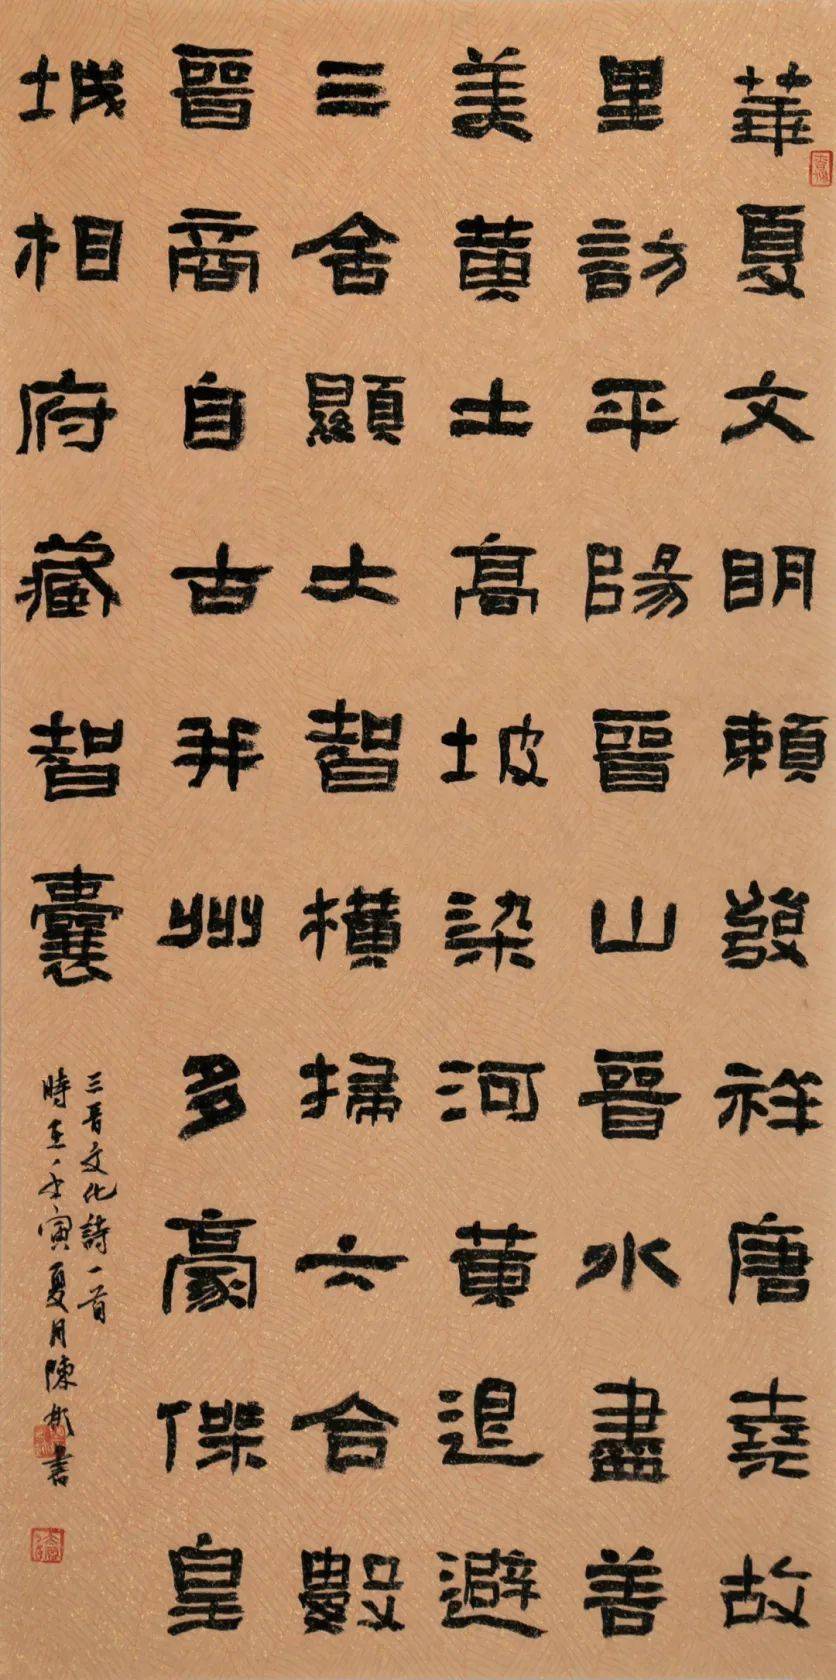 華夏文明賴發祥唐堯故
里訪平陽晉山晉水盡善
美黃土高坡染河黃退避
三舍顯大智橫掃六合數
晉商自古并州多豪傑皇
城相府藏智囊
三晉文化詩一首
時在壬寅夏月陳彬書